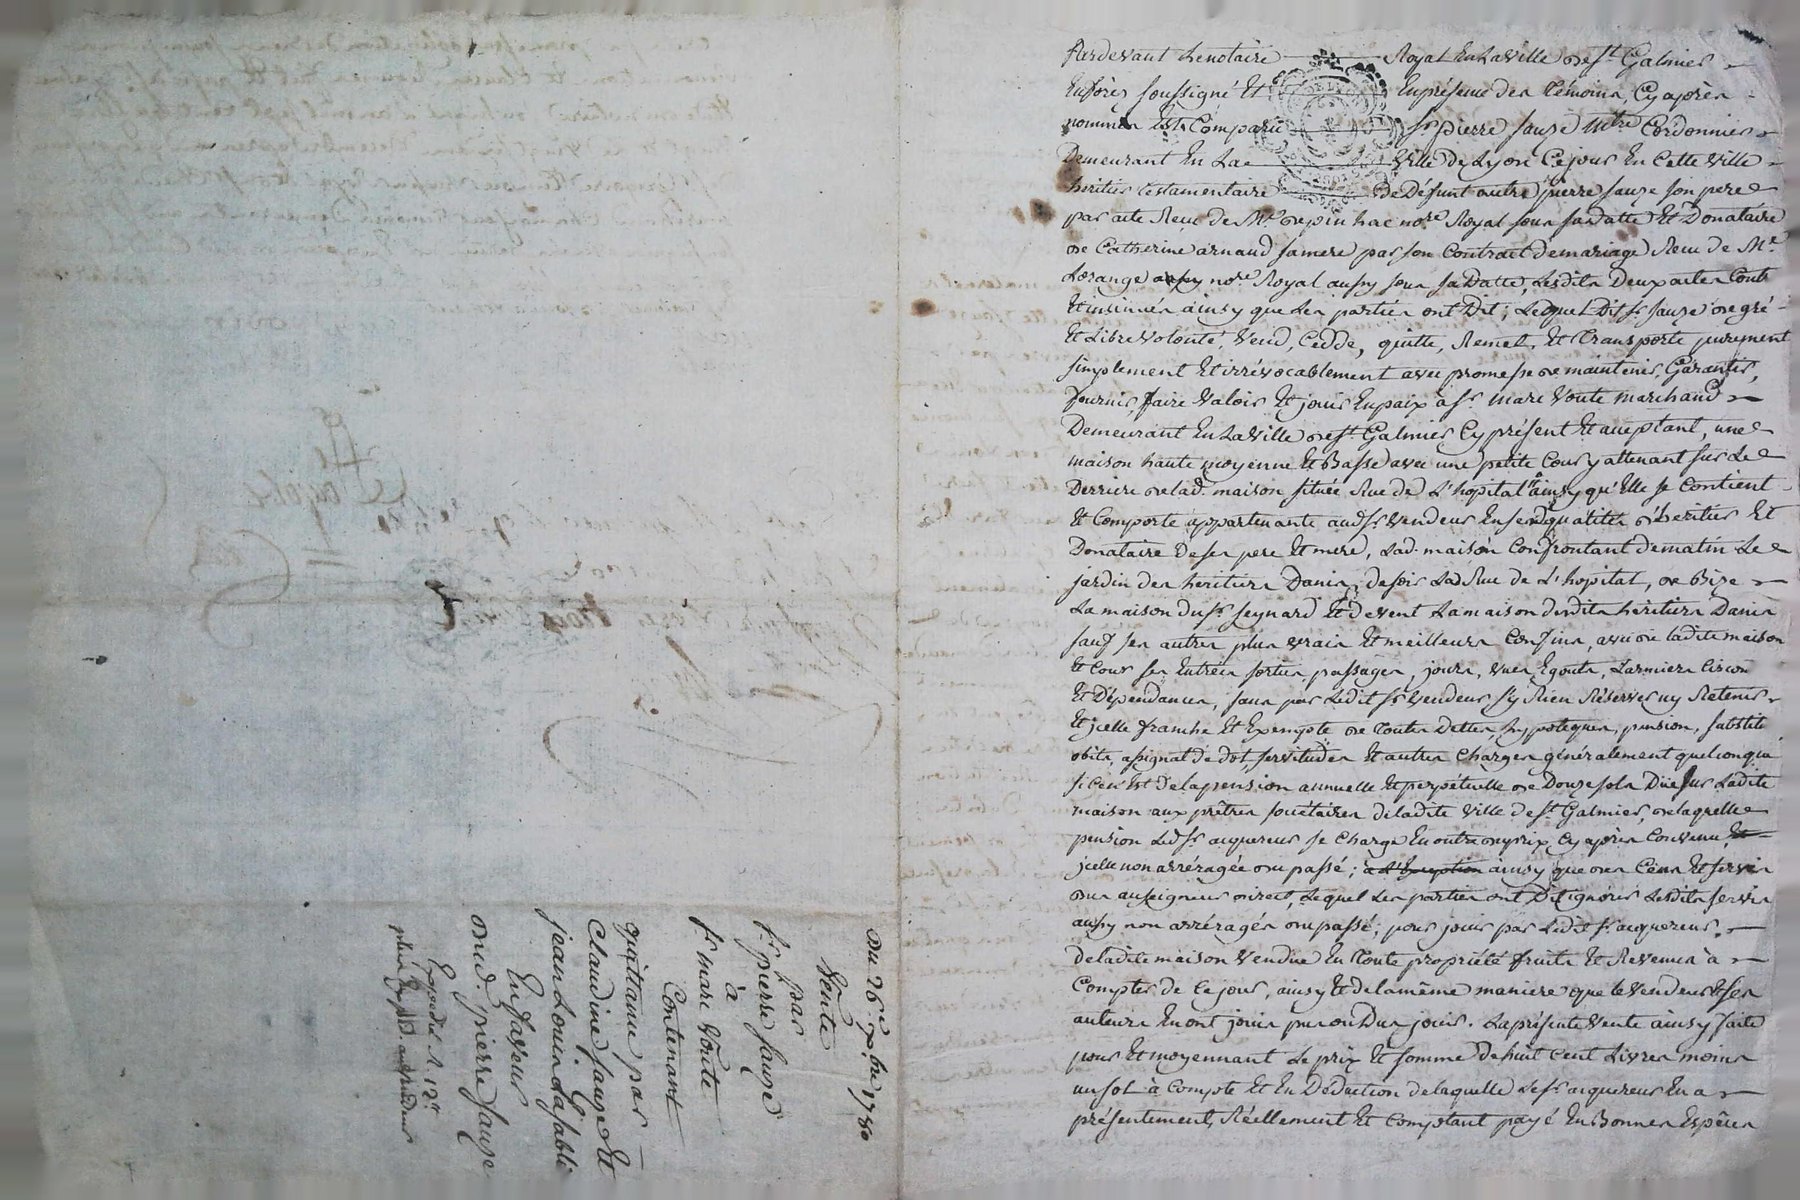 Du 26e 7bre 1780
Vente
par
Sr pierre sauze
à
Sr marc voute
Contenant
quittance par
Claudine sauze Et
jean Louis
En faveur
dud. pierre sauze
Expédié
Pardevant Lenotaire Royal En la Ville de St Galmier
En forez soussigné Et En présence des témoins Cy après
nommés Est Comparu Sr pierre sauze Mtre Cordonnier
Demeurant En La Ville de Lyon Ce jour En Cette Ville
heritier testamentaire de Défunt autre pierre sauze son pere
par acte Reçu de Me nore Royal sous sa datte Et Donataire
de Catherine arnaud sa mere par son Contrat de mariage Reçu de Me
Lorange aussy nore Royal aussy sous sa Datte, Lesdits Deux actes Contr
Et insinués ainsy que Les parties ont Dit; Lequel Dit Sr sauze de gré
Et Libre Volonté, Vend, Cedde, quitte, Remet, Et transporte purement
simplement Et irrévocablement avec promesse de maintenir, Garantir,
fournir, faire Valoir Et jouir En paix à Sr marc Voute marchand
Demeurant En La Ville de St Galmier Cy présent Et acceptant, une
maison haute moyenne Et Basse avec une petite Cour y attenant sur Le
Derriere de lad. maison située Rue de L'hopital ainsy qu'Elle se Contient
Et Comporte appartenante audt Sr Vendeur En sesd. qualités d'heritier Et
Donataire De ses pere Et mere, Lad. maison Confrontant de matin Le
jardin des heritiers Danis, de soir Lad. Rue de L'hopital, de Bize
La maison du Sr seynard Et de vent La maison desdits heritiers Danis
sauf ses autres plus vrais Et meilleurs Confins, avec de ladite maison
Et Cour ses Entrées sorties passages, jours, vues, Egouts, Larmiers
Et Dépendances, sans par Ledit Sr Vendeur s'y Rien Réserver ny Retenir
Et icelle franche Et Exempte de toutes Dettes, hypoteques, pension, substit
obits, assignat de dot, servitudes Et autres Charges généralement quelconques
si ce n'Est De la pension annuelle Et perpetuelle de Douze sols Düe sur Ladite
maison aux prêtres sociétaires de ladite Ville de St Galmier, de laquelle
pension Led. Sr acquereur se Charge En outre du prix Cy après Convenu,
icelle non arréragée du passé; ainsy que des Cens Et servis
dus au seigneur direct, Lequel Les parties ont Dit ignorer Lesdits servis
aussy non arréragés du passé; pour jouir par Ledit Sr acquereur
de ladite maison Vendue En toute propriété fruits Et Revenus à
Compter de Ce jour, ainsy Et de la même maniere que le Vendeur Et ses
auteurs En ont joui pu ou Du jouir. La présente Vente ainsy faite
pour Et moyennant Le prix Et somme De huit Cent Livres moins
un sol à Compte Et En Déduction de laquelle Le Sr acquereur En a
présentement, Réellement Et Comptant payé En Bonnes Espêces